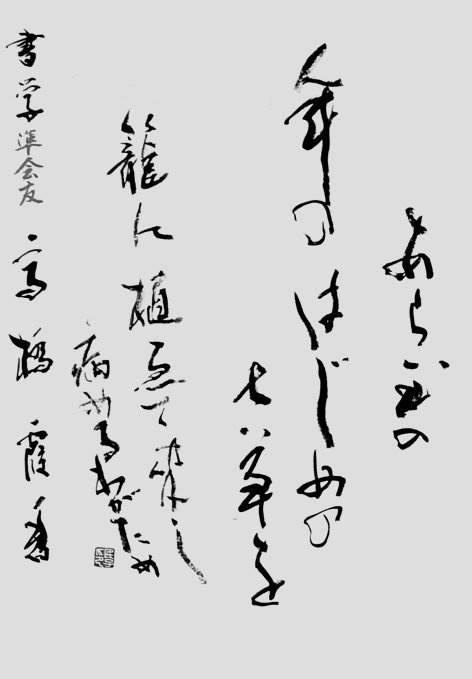 あら玉の
年のはじめの
七草を
籠に植ゑて来し
病めるわがため
書学準会友 高橋霞香